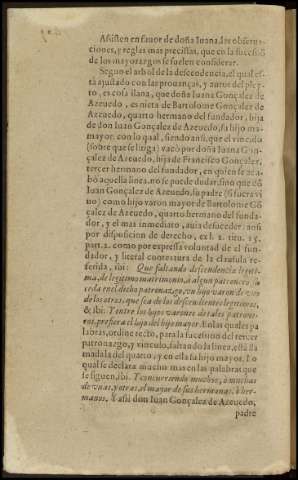 Assisten en fauor de doña Iuana, las obserua-
ciones, y reglas mas precissas, que en la sucessiõ
de los mayorazgos se suelen considerar.
Segun el arbol de la descendencia, el qual es-
tà ajustado con las prouanças, y autos del pley-
to, es cosa llana, que doña Iuana Gonçalez de
Azeuedo, es nieta de Bartolome Gonçalez de
Azeuedo, quarto hermano del fundador, hija
de don Iuan Gonçalez de Azeuedo, su hijo ma-
yor. con lo qual, siendo ansi, que el vinculo
(sobre que se litiga) vacò por doña Iuana Gon-
çalez de Azeuedo, hija de Francisco Gonçalez,
tercer hermano del fundador, en quien se aca-
bò aquella linea. no se puede dudar, sino que dõ
Iuan Gonçalez de Azeuedo, su padre (si fuera vi-
uo) como hijo varon mayor de Bartolome Gõ
çalez de Azeuedo, quarto hermano del funda-
dor, y el mas inmediato, auia de suceder. ansi
por disposicion de derecho, ex l. 2. tit. 15.
part. 2. como por expressa voluntad de el fun-
dador, y literal contextura de la clausula re-
ferida, ibi: Que faltando descendencia legiti-
ma, de legitimo matrimonio, à algun patronero su-
ceda en el dicho patronazgo, un hijo varon de uno
de los otros, que sea de los descendientes legitimos,
& ibi: Y entre los hijos varones de tales patrone-
ros, prefiera el hijo del hijo mayor. En las quales pa
labras, ordine recto, para la sucession del tercer
patronazgo, y vinculo, faltando la linea, està lla
mada la del quarto, y en ella su hijo mayor. Lo
qual se declara mucho mas en las palabras que
se siguen, ibi: Y concurriendo muchos, ò muchas
de unas, y otras, el mayor de sus hermanas, ò her-
manos. Y assi don Iuan Gonçalez de Azeuedo,
padre